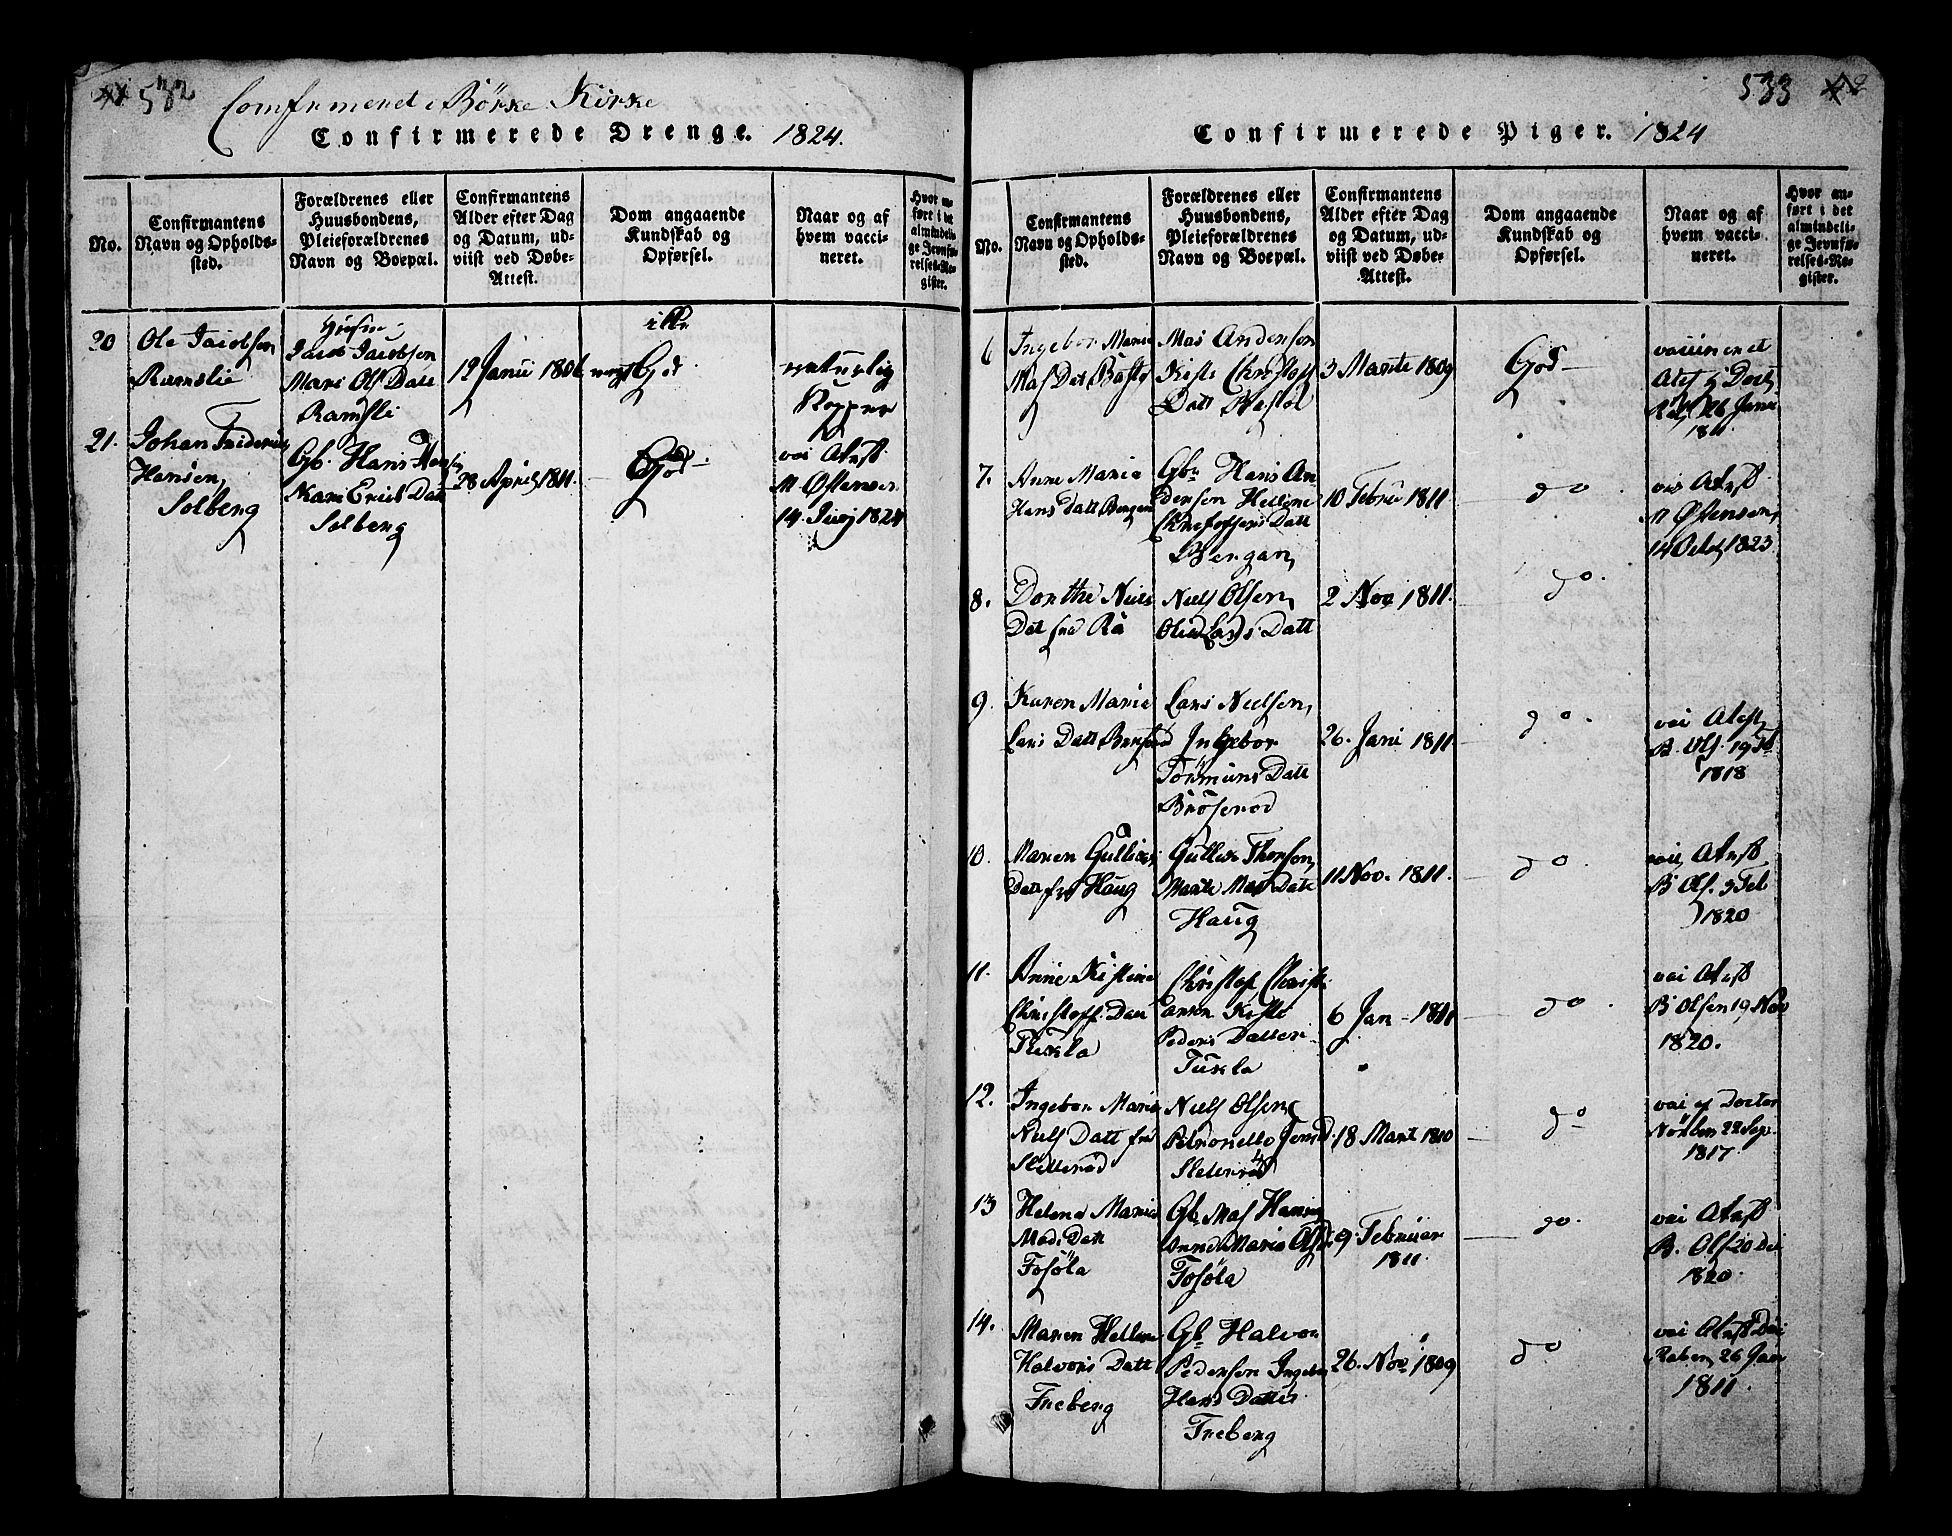 532
Comfirmered i Børke Kirke
Confirmerede Drenge. 1824.
No.
Confirmantens Navn og Opholdssted.
Forældrenes eller Huusbondens, Pleieforældrenes Navn og Boepæl.
Confirmantens Alder efter Dag og Datum, udviist ved Døbe-Attest.
Dom angaaende Kundskab og Opførsel.
Naar og af hvem vaccineret.
Hvor anført i det almindelige Jevnførelses-Register.
20
Ole Jacobsen
Ramslie
Husm.
Jacob Jacobsen
Mari Ols Datt
Ramsli
12 Janii 1806
ille
meget God
naturlig
Kopper
21.
Johan Frideric
Hansen
Solberg
Gb. Hans Hansen
Kari Erics Datt
Solberg
28 April 1811.
God
vai Atest
M Østensen
14. Juij 1824
533
Confirmerede Piger. 1824
No.
Confirmantens Navn og Opholdssted.
Forældrenes eller Huusbondens, Pleieforældrenes Navn og Boepæl.
Confirmantens Alder efter Dag og Datum, udviist ved Døbe-Attest.
Dom angaaende Kundskab og Opførsel.
Naar og af hvem vaccineret.
Hvor anført i det almindelige Jevnførelses-Register.
6
Ingebor Marie
Mas Dat Båstø
Mas Andersen
Kisti Christoff
Datt Bastøl
3 Marte 1809
God
vaccineret
Atest Doct
26 Janu
1811
7.
Anne Maria
Hans Datt Bergan
Gbr Hans An
dersen Hellene
Christoffers Datt
Bergan
10 Febru 1811
do
vai Atest
M Østensen
14 Octo 1823
8.
Dorthe Niels
Dat fra Rå
Niels Olsen
Olia Lars Datt
2 Nov 1811.
do.
9
Karen Marie
Lars Datt
Lars Nielsen
Ingebor
Tormuns Datt
Bröserød
26. Jani 1811
do.
vai Atest
B. Ols. 19
1818
10.
Maren Gullics
Datt fra Haug
Gullik Thorson
Marte Mas Datt
Haug
11 Nov. 1811.
do.
vai Atest
B Ols. 3 Feb
1820
11.
Anne Kistine
Christoff. Datt
Tukla
Christof Christ
ansen Kisti
Peders Datter
Tukla
6 Jan 1811
do
vai Atest
B Olsen 19 Nov
1820.
12.
Ingebor Maria
Niels Datt fra
Sletterød
Niels Olsen
Petronelle Jensd
Sletterød
18 Mart 1810
do
vai af Doctor
22 Sep.
1817
13
Helena Maria
Mads Datt
Fosöla
Gb. Mas Hansen
Anne Maria Olsd
Fosöla
9 Februar
1811.
do.
vai Atest
B. Ols 20 Dei
1820
14.
Maren Hellene
Halvors Datt
Freberg
Gb Halvor
Pederson Ingebor
Hans Datter
Freberg
26. Nov 1809
do
vai Atest
Raben 26 Jan
1811